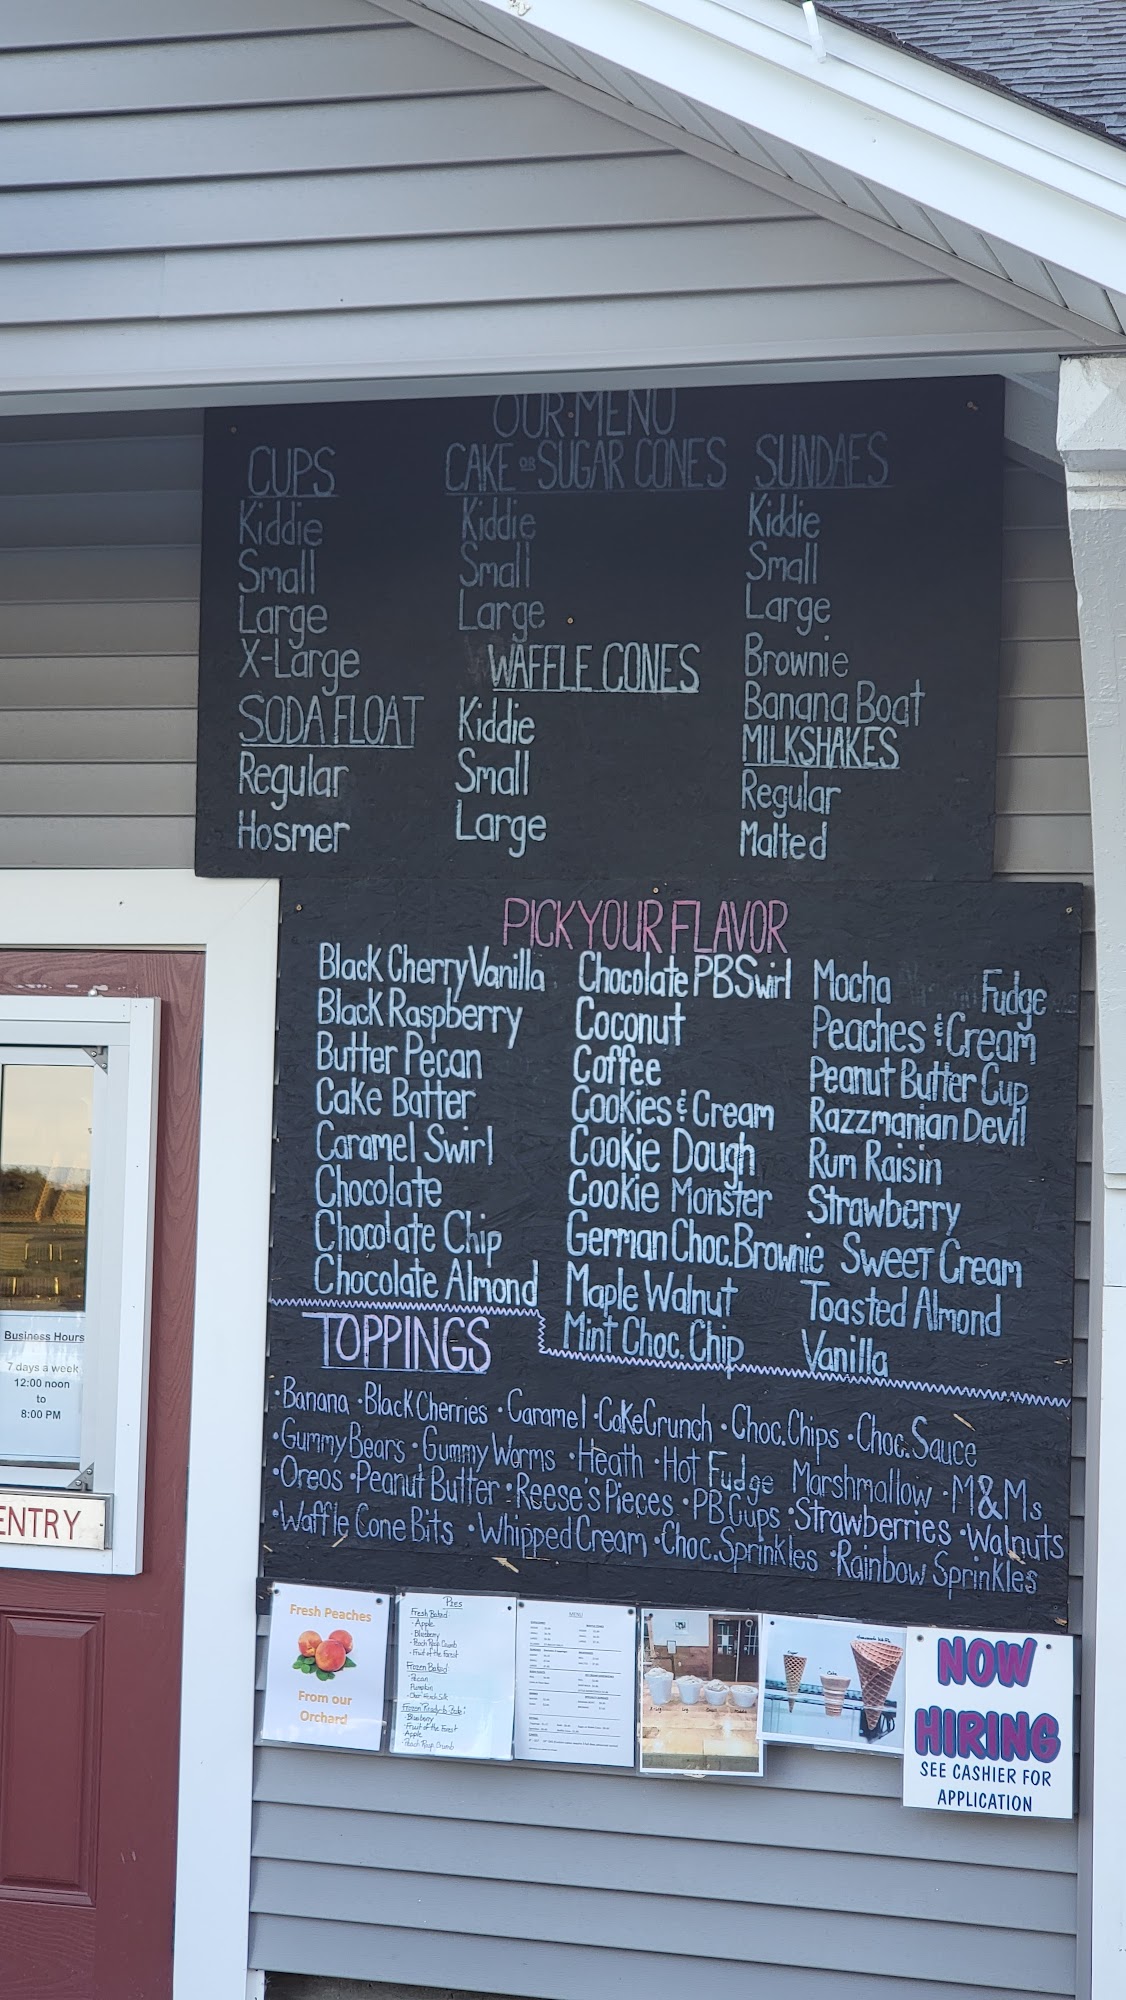 OUR MENU
CUPS
Kiddie
Small
Large
X-Large
SODA FLOAT
Regular
Hosmer
CAKE OR SUGAR CONES
Kiddie
Small
Large
WAFFLE CONES
Kiddie
Small
Large
SUNDAES
Kiddie
Small
Large
Brownie
Banana Boat
MILKSHAKES
Regular
Malted
PICK YOUR FLAVOR
Black Cherry Vanilla
Black Raspberry
Butter Pecan
Cake Batter
Caramel Swirl
Chocolate
Chocolate Chip
Chocolate Almond
Chocolate PB Swirl
Coconut
Coffee
Cookies & Cream
Cookie Dough
Cookie Monster
German Choc. Brownie
Maple Walnut
Mint Choc. Chip
Mocha Fudge
Peaches & Cream
Peanut Butter Cup
Razzmanian Devil
Rum Raisin
Strawberry
Sweet Cream
Toasted Almond
Vanilla
TOPPINGS
·Banana ·Black Cherries ·Caramel ·Cake Crunch ·Choc. Chips ·Choc. Sauce
·Gummy Bears ·Gummy Worms ·Heath ·Hot Fudge Marshmallow ·M&Ms
·Oreos ·Peanut Butter ·Reese's Pieces ·PB Cups ·Strawberries ·Walnuts
·Waffle Cone Bits ·Whipped Cream ·Choc. Sprinkles ·Rainbow Sprinkles
Business Hours
7 days a week
12:00 noon
to
8:00 PM
ENTRY
Fresh Peaches
From our
Orchard
Pies
Fresh Baked
Apple
Blueberry
Peach Rasp Crumb
Fruit of the Forest
Frozen Baked
Pecan
Pumpkin
Frozen Ready to Bake:
Blueberry
Fruit of the Forest
Apple
Peach Rasp Crumb
MENU
Cake
NOW
HIRING
SEE CASHIER FOR
APPLICATION